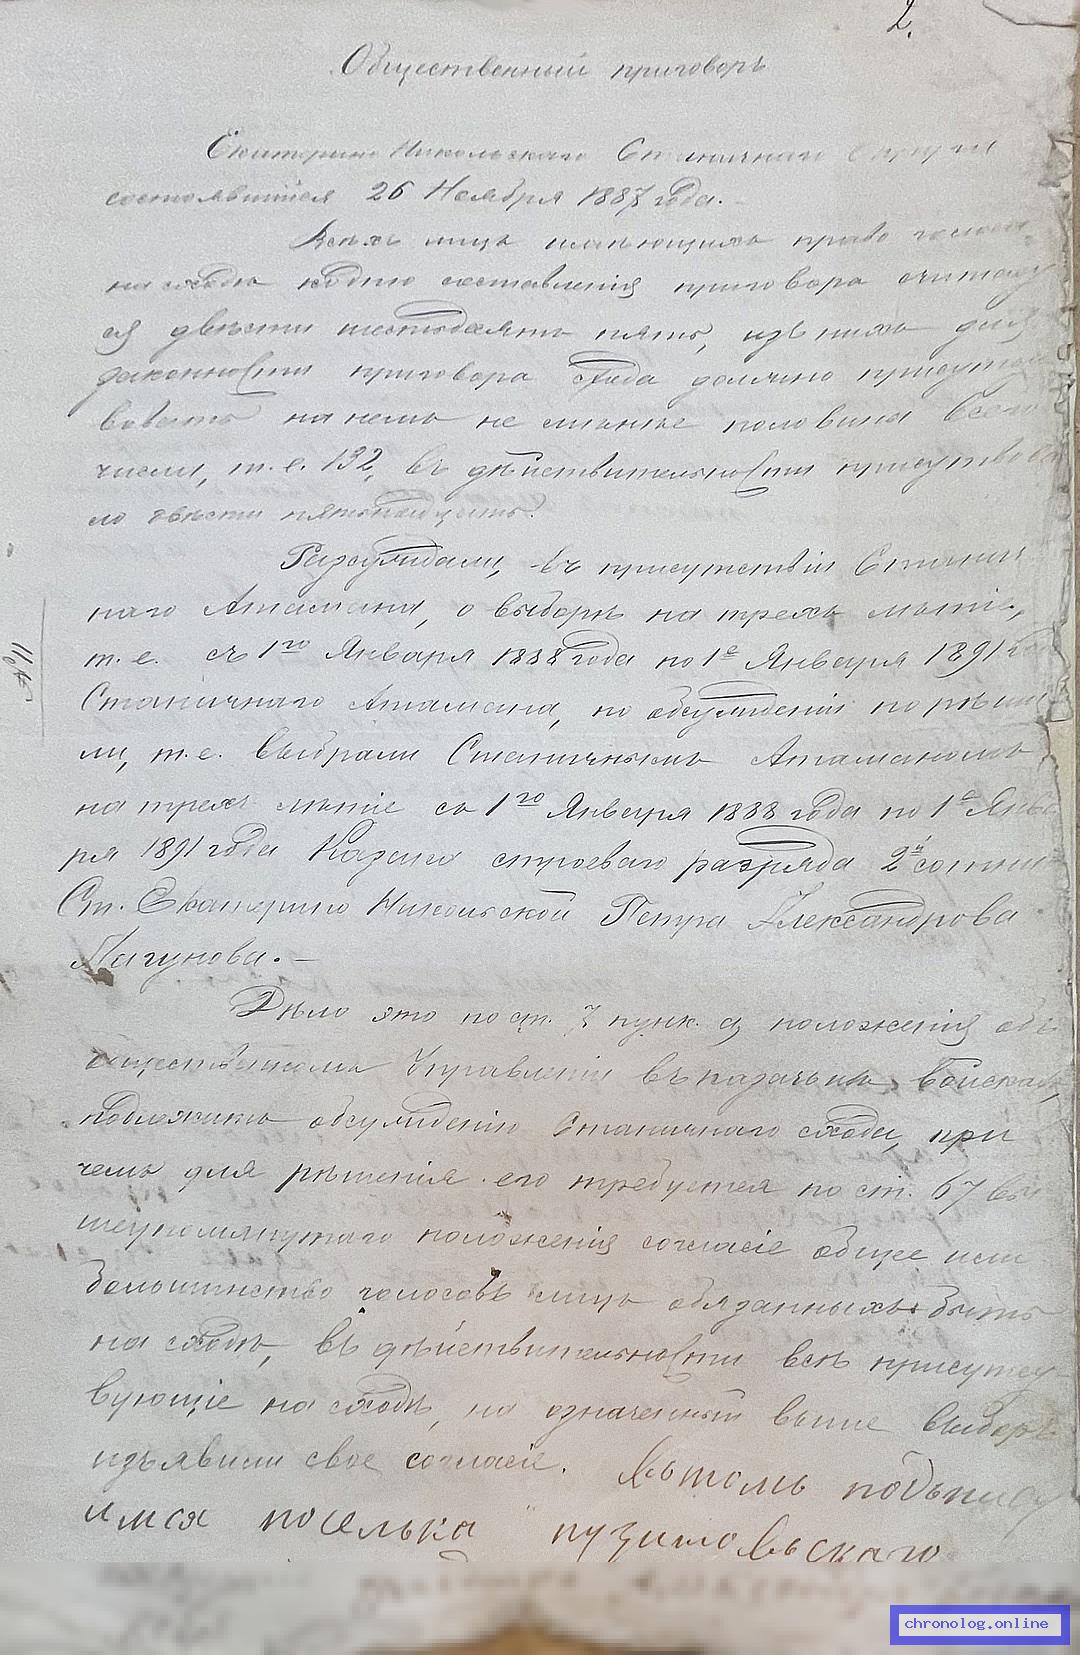 2.
Общественный приговоръ
Екатерино Никольскаго Станичнаго Округа
состоявшійся 26 Ноября 1887 года. -
Всѣхъ лицъ имѣющихъ право голоса
на сходѣ ко дню составленія приговора считает
ся двѣсти шестьдесятъ пять, изъ нихъ для
законности приговора схода должно присутс
вовать на немъ не менѣе половины всего
числа, т. е. 132, въ дѣйствительности присутствова
ло двѣсти пятьнадцать.
Разсуждали, въ присутствіи Станич
наго Атамана, о выборѣ на трехъ лѣтіе,
т. е. съ 1го Января 1888 года по 1е Января 1891 года
Станичнаго Атамана, по обсужденіи порѣши
ли, т. е. выбрали Станичнымъ Атаманомъ
на трехъ лѣтіе съ 1го Января 1888 года по 1е Янва
ря 1891 года Казака строеваго разряда 2й сотни
Ст. Екатерино Никольской Петра Александрова
Лагунова. -
Дѣло это по ст. 7 пунк. а положенія объ
общественномъ Управленіи въ казачьихъ войскахъ,
подлежитъ обсужденію Станичнаго схода, при
чемъ для рѣшенія его требуется по ст. 67 вы
шеупомянутаго положенія согласіе общее или
большинство голосовъ лицъ обязанныхъ быть
на сходѣ, въ дѣйствительности всѣ присутст
вующіе на сходѣ, на означенный выше выборъ
изъявили свое согласіе. Вътомъ подъпису
имся поселька пузиновьскаго
chronolog.online